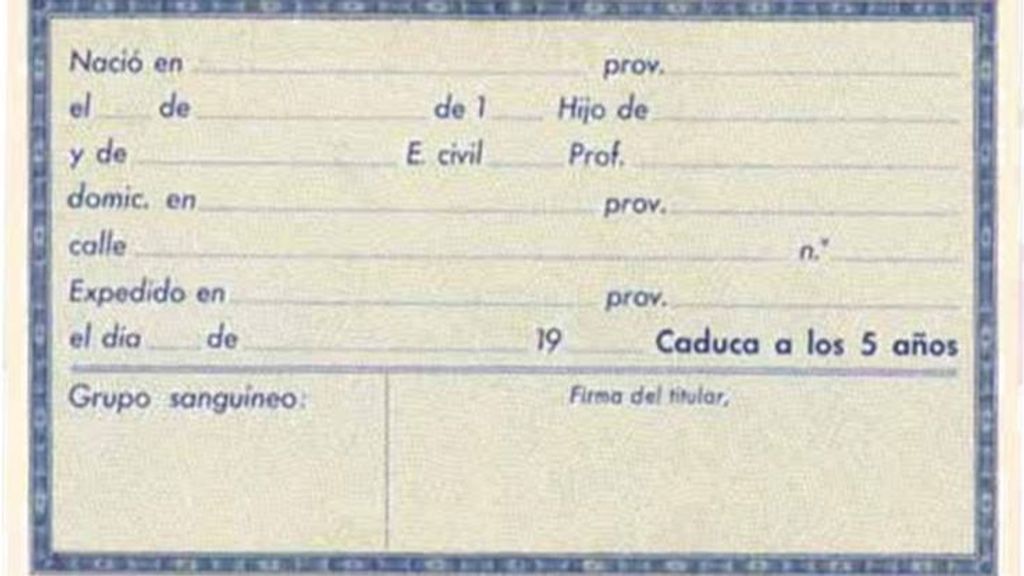 Nació en prov.
el de de 1 Hijo de
y de E. civil Prof.
domic. en prov.
calle n.º
Expedido en prov.
el día de 19 Caduca a los 5 años
Grupo sanguíneo: Firma del titular,